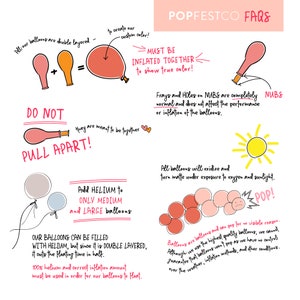 POPFESTCO. FAQs
All our balloons are double layered -
to create our
custom color!
MUST BE
INFLATED TOGETHER
to show true color!
NUBS
Frays and Holes on NUBS are completely
normal and does not affect the performance
or inflation of the balloons.
DO NOT
PULL APART!
They are meant to be together
All balloons will oxidize and
turn matte under exposure to oxygen and sunlight.
Add HELIUM to
ONLY MEDIUM
and LARGE balloons
POP!
OUR BALLOONS CAN BE FILLED
WITH HELIUM, but since it is DOUBLE LAYERED,
it cuts the floating time in half.
100% helium and correct inflation amount
must be used in order for our balloons to float.
Balloons are balloons and can pop for no visible reason.
Although we use the highest quality balloons, we cannot
guarantee that balloons won't pop as we have no control
over the weather, inflation methods, and other conditions.